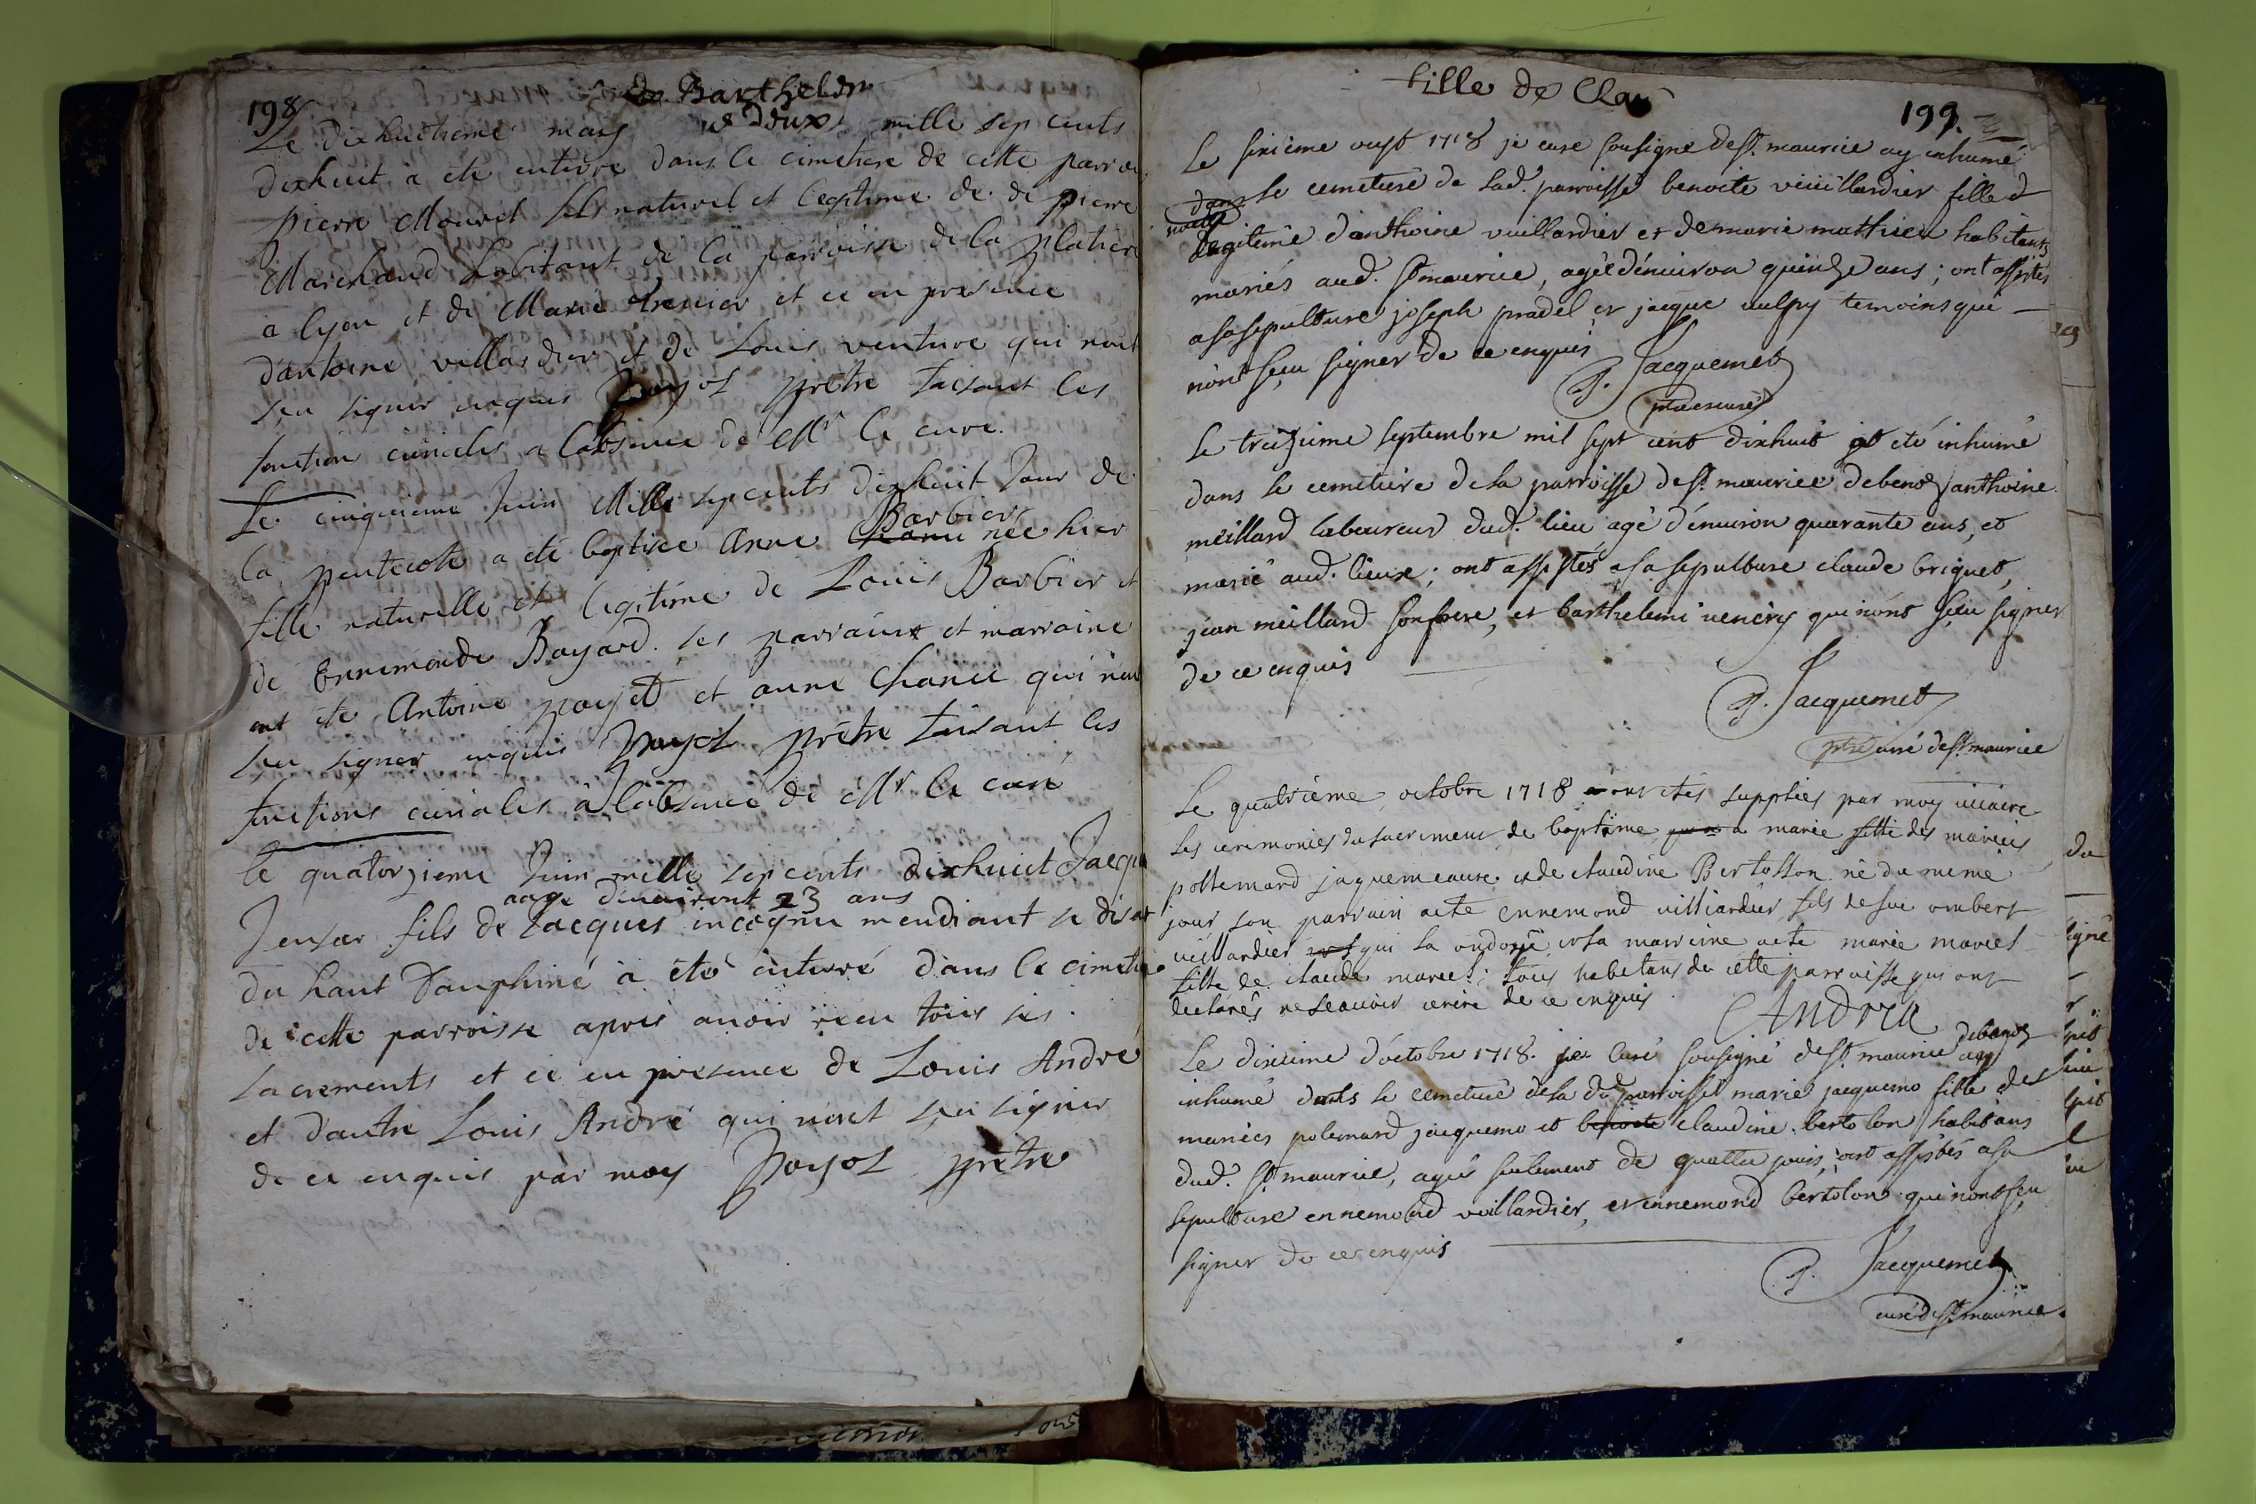 198
Barthelem
Le dixhuitieme mars mille sept cents
dixhuit a ete enterre dans le cimetiere de cette parroi
pierre Mouret fils naturel et legitime de de pierre
Marchand habitant de la parroisse de la platiere
a lyon et de Marie et ce en presence
d'antoine villardier et de Louis venture qui n'ont
seu signer enquis Payol prêtre faisant les
fonction curiales a l'absence de Mr le curé.
Le cinquieme Juin Mille sept cents dixhuit Jour de
Barbier
la pentecote a ete baptisée Anne née hier
fille naturelle et legitime de Louis Barbier et
de Ennemonde Bayard. ses parrains et marraine
ont ete Antoine payet et anne Chanu qui n'ont
seu signer enquis Payol prêtre faisant les
fonctions curiales à l'absence de Mr le curé
le quatorzieme Juin mille sept cents dixhuit Jacque
aage d'environt 23 ans
fils de Jacques incognu mendiant se disant
du haut Dauphiné à été enterré dans le cimetie
de cette parroisse apres avoir receu tous ses
sacrements et ce en presence de Louis André
et d'autre Louis André qui n'ont seu signer
de ce enquis par moy Payol prêtre
fille de Clau
199.
Le sixieme oust 1718 je curé sousigné de st. maurice ay inhumé
dans le cemetiere de lad. parroisse benoite veuillardier fille
legitime d'anthoine vuillardier et de marie matthieu habitants
mariés aud. st maurice, agée d'environ quinze ans; ont assistés
a sa sepulture joseph pradel et jacque vulpy temoins qui
n'ont sçeu signer de ce enquis
P. Jacquemet
ptre curé
Le treizieme septembre mil sept cent dixhuit at eté inhumé
dans le cemetiere de la parroisse de st. maurice de benoz anthoine
meillard laboureur dud. lieu agé d'environ quarante ans, et
marié aud. lieux; ont assistés a sa sepulture claude briguet,
jean meillard son frere, et barthelemi venery qui n'ont sçeu signer
de ce enquis
P. Jacquemet
ptre curé de st. maurice
Le quatrieme octobre 1718 ont etés supplées par moy vicaire
les ceremonies du sacrement de baptême a marie fille des mariés
poltemard jaquemeaux et de claudine Bertollon né du meme
jour son parrain a ete ennemond villiardier fils de feu ombert
vuillardier qui la ondoyé et sa marreine a ete marie maviel
fille de claude; tous habitans de cette parroisse qui ont
declarés ne sçavoir ecrire de ce enquis
Andrea
Le dixieme d'octobre 1718. je curé sousigné de st. maurice de benoz ay
inhumé dans le cemetiere de la de parroisse marie jacquemo fille des
mariés polemard jacquemo et claudine bertolon habitans
dud. st. maurice, agée seulement de quattre jours; ont assistés a sa
sepulture ennemond vuillardier, et ennemond bertolon qui n'ont sçeu
signer de ce enquis
P. Jacquemet
curé de st. maurice